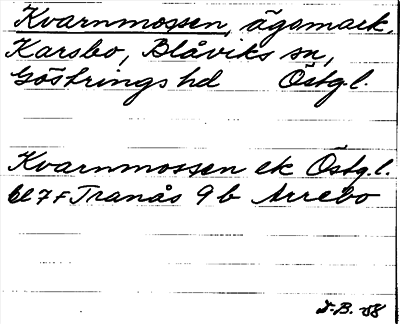 Kvarnmossen, ägomark,
Karsbo, Blåviks sn,
Göstrings hd Östg.l.
Kvarnmossen ek Östg.l.
bl 7F Tranås 9 b Arrebo